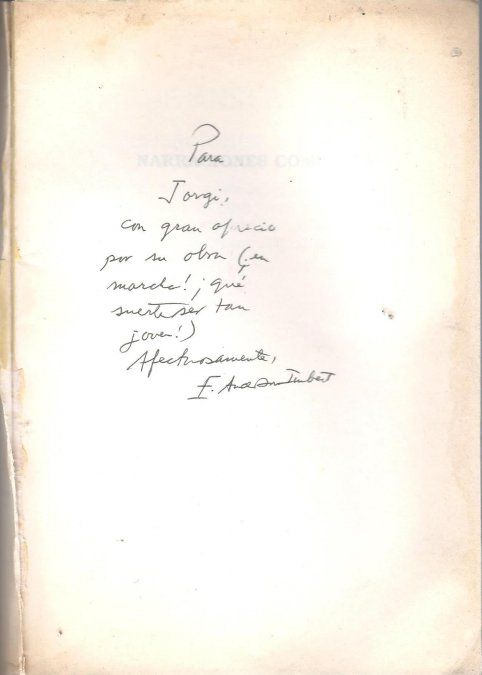 Para
Jorgi,
con gran aprecio
por su obra (¡en
marcha! ¡qué
suerte ser tan
joven!)
Afectuosamente,
E. Anderson Imbert
NARRACIONES COM